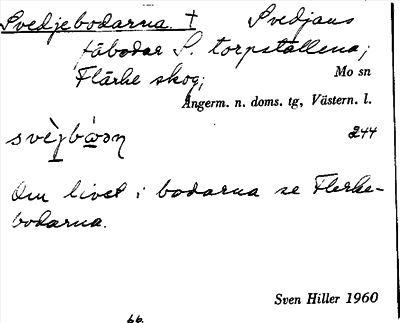 Svedjebodarna. † Svedjans
fäbodar S. torpställena;
Flärke skog; Mo sn
Ångerm. n. doms. tg, Västern. l.
244
Om livet i bodarna se Flerke-
bodarna.
Sven Hiller 1960
66.